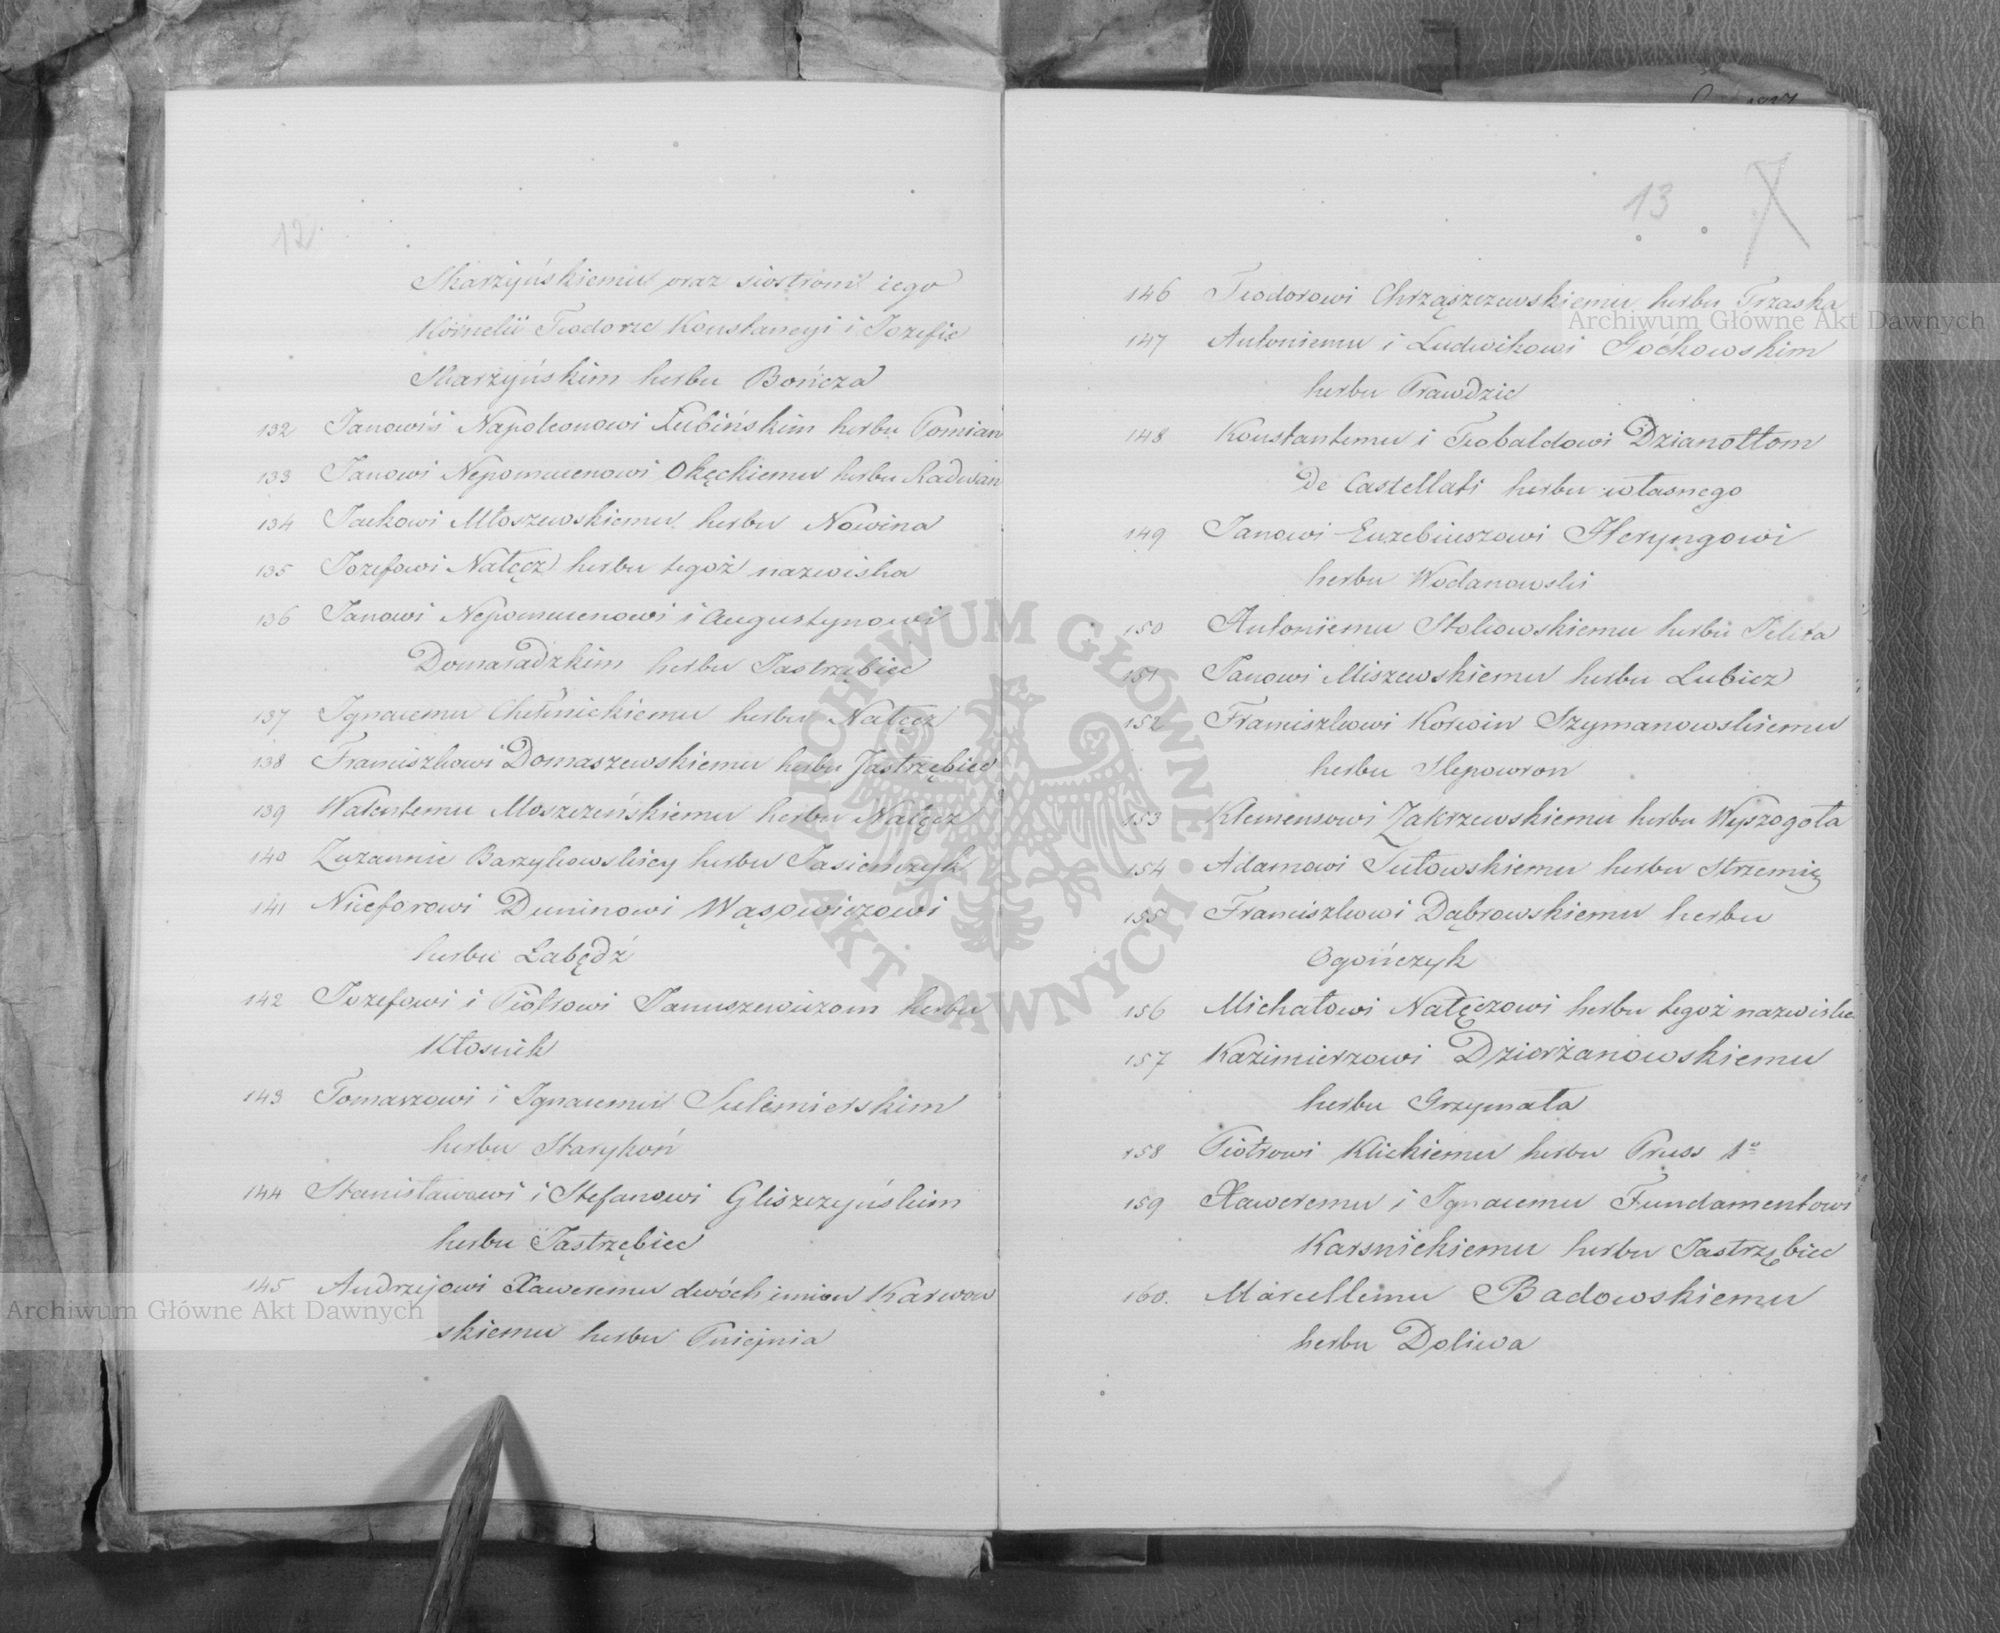 12
Skarzyńskiemu oraz siostrom iego
Kornelii Teodorze Konstancyi i Jozefie
Skarzyńskim herbu Bończa
132 Janowi i Napoleonowi Łubińskim herbu Pomian
133 Janowi Nepomucenowi Okęckiemu herbu Radwan
134 Jackowi Młoszewskiemu herbu Nowina
135 Jozefowi Nałęcz herbu tegoż nazwiska
136 Janowi Nepomucenowi i Augustynowi
Domaradzkim herbu Jastrzębiec
137 Ignacemu Chełmickiemu herbu Nałęcz
138 Franciszkowi Domaszewskiemu herbu Jastrzębiec
139 Walentemu Moszczeńskiemu herbu Nałęcz
140 Zuzannie Barzykowskiey herbu Jasieńczyk
141 Niceforowi Duninowi Wąsowiczowi
herbu Łabędź
142 Jozefowi i Piotrowi Januszewiczom herbu
Kłosnik
143 Tomaszowi i Ignacemu Sulimierskim
herbu Starykoń
144 Stanisławowi i Stefanowi Gliszczyńskim
herbu Jastrzębiec
145 Andrzejowi Xaweremu dwóch imion Karwow
skiemu herbu Pniejnia
13
146 Teodorowi Chrząszczewskiemu herbu Trzaska
147 Antoniemu i Ludwikowi Goćkowskim
herbu Prawdzic
148 Konstantemu i Teobaldowi Dzianottom
De Castellati herbu własnego
149 Janowi Euzebiuszowi Heryngowi
herbu Wodanowski
150 Antoniemu Stokowskiemu herbu Jelita
151 Janowi Miszewskiemu herbu Lubicz
152 Franciszkowi Korwin Szymanowskiemu
herbu Slepowron
153 Klemensowi Zakrzewskiemu herbu Wyszogota
154 Adamowi Sutowskiemu herbu Strzemię
155 Franciszkowi Dąbrowskiemu herbu
Ogończyk
156 Michałowi Nałęczowi herbu tegoż nazwiska
157 Kazimierzowi Dziorżanowskiemu
herbu Grzymała
158 Piotrowi Klickiemu herbu Pruss 1o
159 Xaweremu i Ignacemu Fundamentowi
Karsnickiemu herbu Jastrzębiec
160. Marcellemu Badowskiemu
herbu Doliwa
Archiwum Główne Akt Dawnych
Archiwum Główne Akt Dawnych
ARCHIWUM GŁÓWNE AKT DAWNYCH